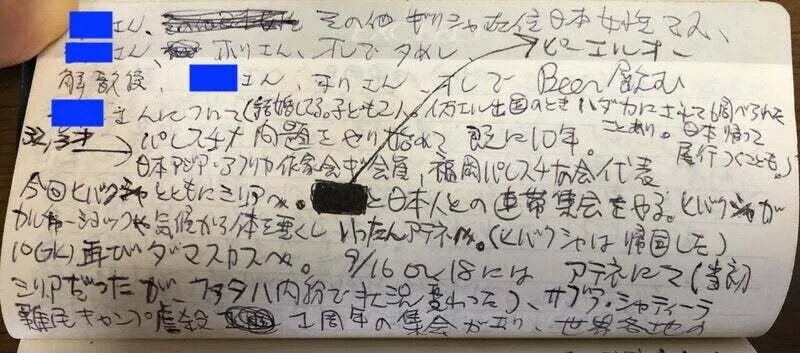 さん、 その他 ギリシャ在住日本女性で2人、
さん、 ホリさん、オレで夕めし ピーエルオー
解散後、 さん、ホリさん、オレで Beer 飲む
さんについて(結婚してる。子ども2)。イスラエル出国のとき ハダカにされて調べられた
ことあり。日本帰って
尾行つくことも。)
32,3才 パレスチナ問題をやり始めて 既に10年。
日本アジア・アフリカ作家会ギ会員、福岡パレスチナの会代表
今回ヒバクシャとともにシリアへ。 と日本人との連帯集会をやる。ヒバクシャが
カルチャーショックや気候から体を悪くし いったんアテネへ。(ヒバクシャは帰国した)
再びダマスカスへ。 9/16 or 18には アテネにて(当初
シリアだったが、ファタハ内紛で状況変わった)、サブラ・シャティーラ
難民キャンプ虐殺 1周年の集会があり、世界各地の